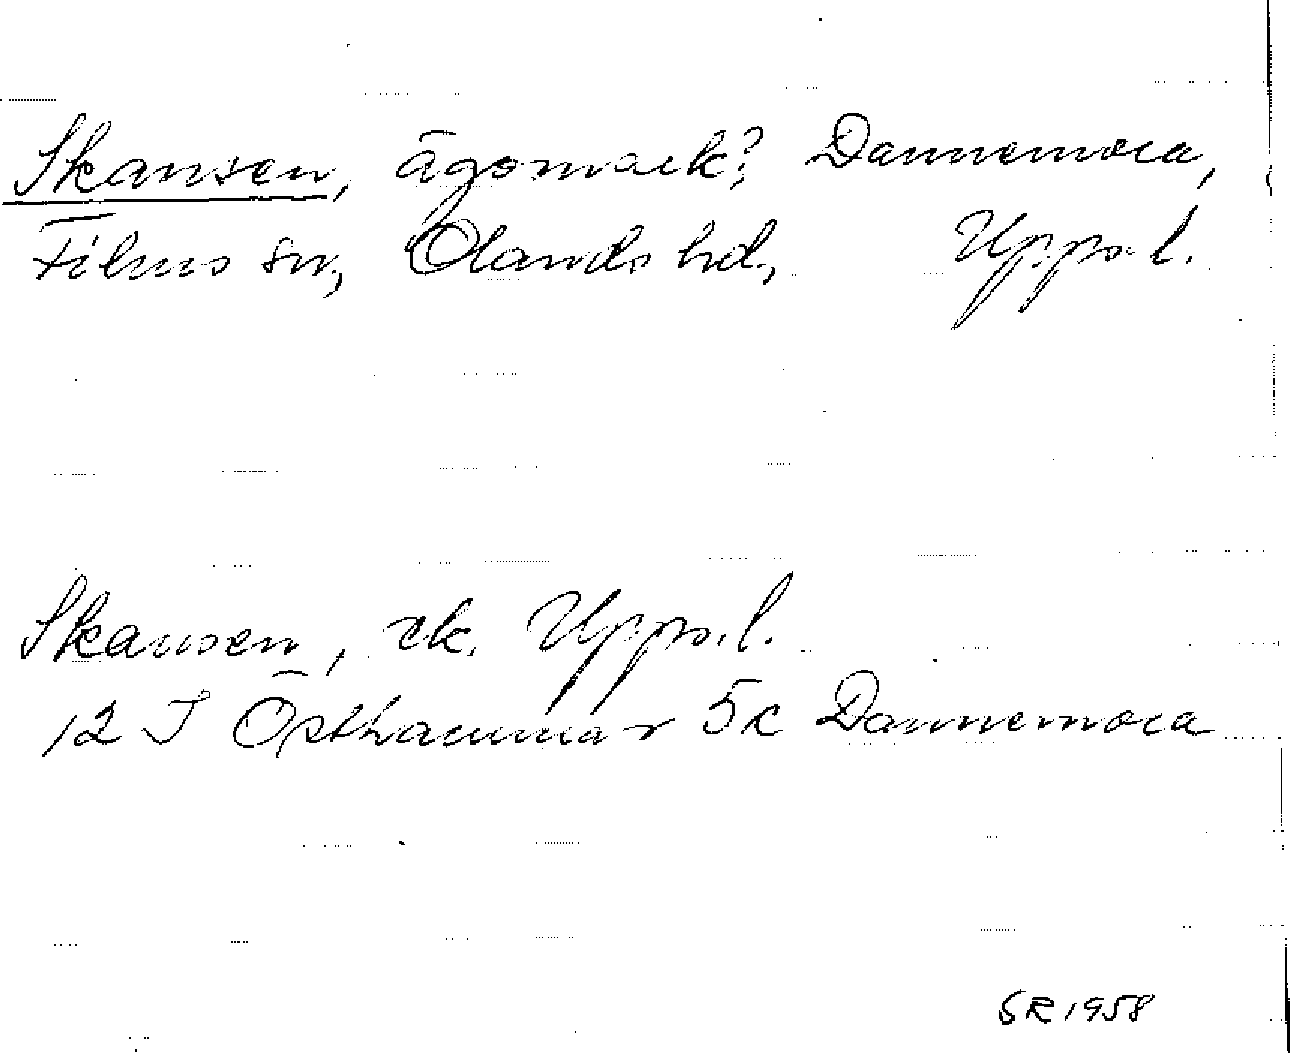 Skansen, ägomark?, Dannemora,
Films sn, Olands hd, Upps. l.
Skansen, ek. Upps. l.
12 I Östhammar 5c Dannemora
SR 1958